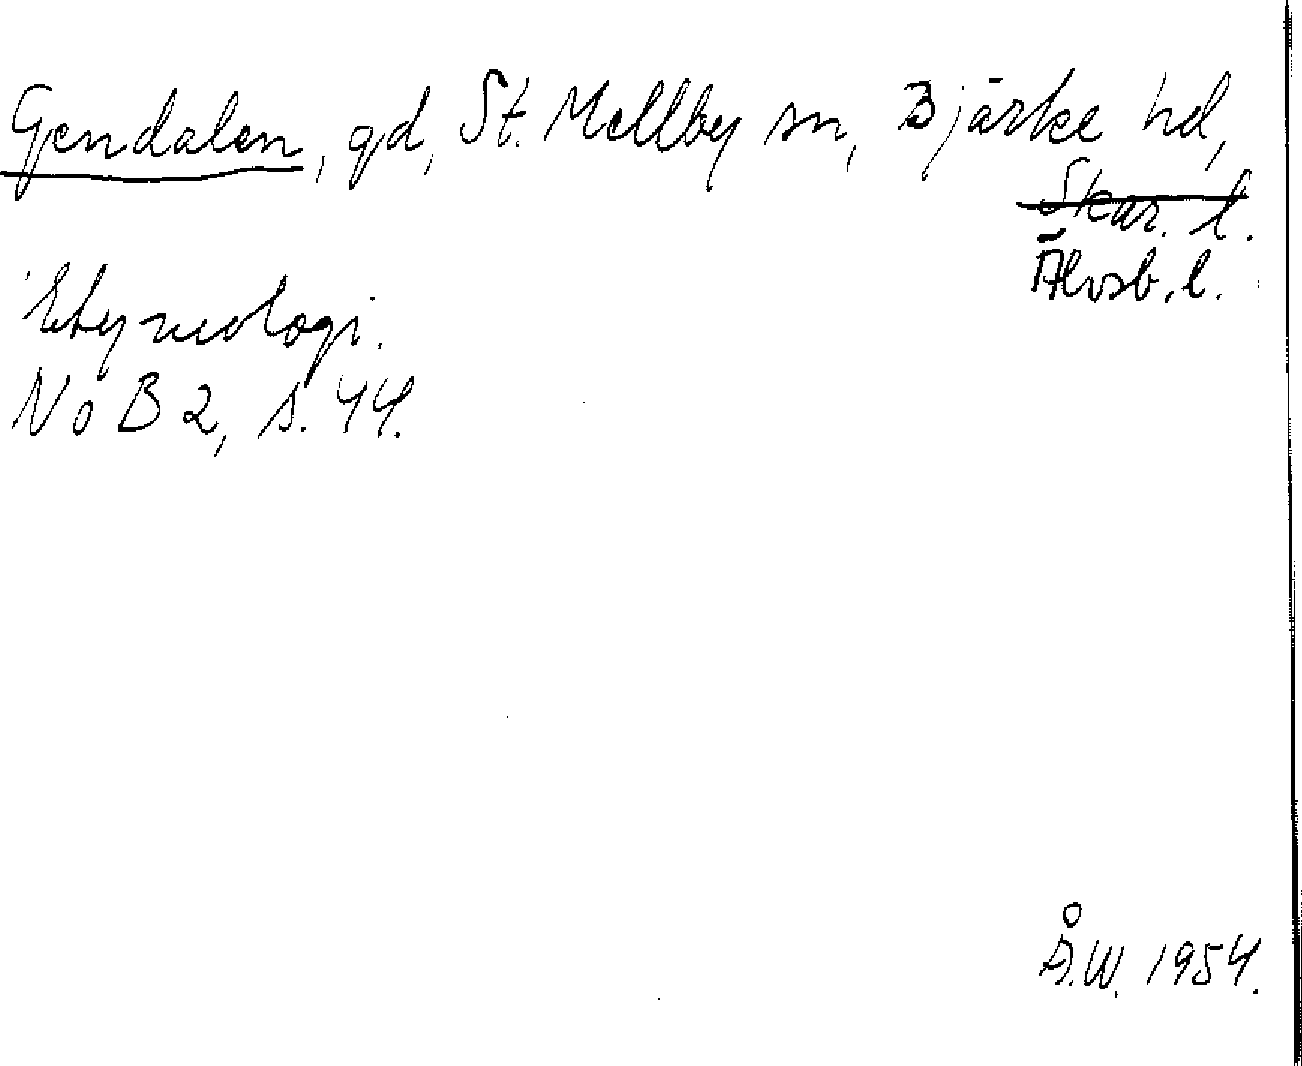 Gendalen, gd, St. Mellby sn, Bjärke hd,
Skar. l.
Älvsb. l.
Etymologi.
NoB 2, s. 44.
Å.W. 1954.